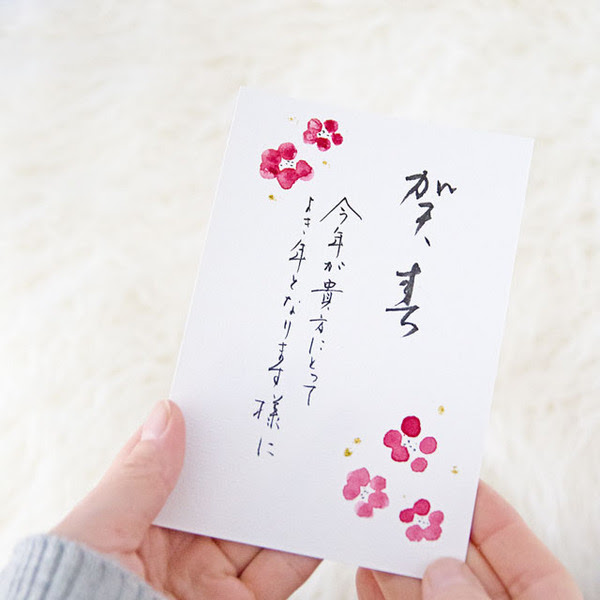 賀春
今年が貴方にとって
よき年となります様に